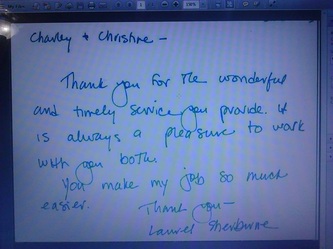 Charley + Christine -
Thank you for the wonderful
and timely service you provide. It
is always a pleasure to work
with you both.
You make my job so much
easier.
Thank you -
Laurel Sherburne